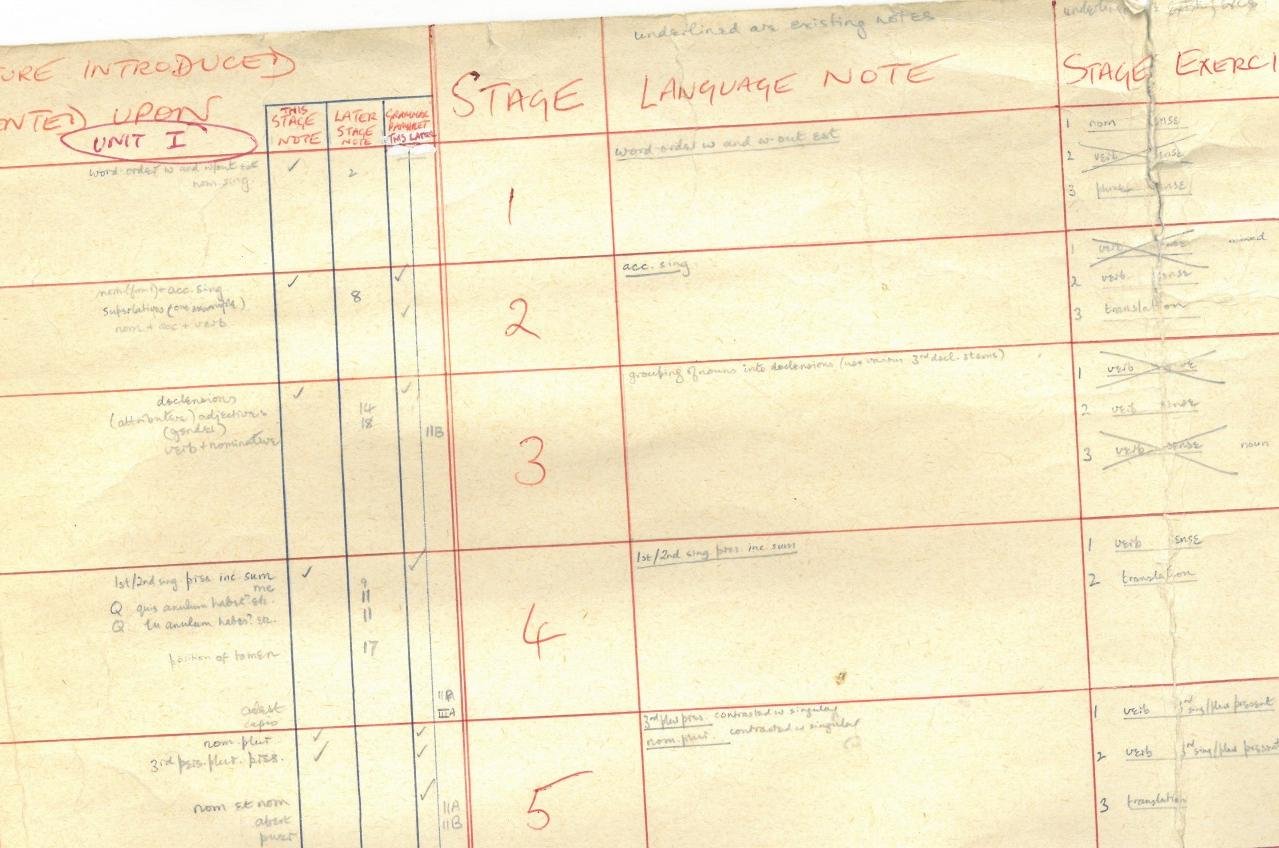 underlined are existing notes
URE INTRODUCED
ONTED UPON
UNIT I
THIS STAGE NOTE
LATER STAGE NOTE
GRAMMAR PAMPHLET THIS LATER
STAGE
LANGUAGE NOTE
STAGE EXERCI
word order w and w'out est ✓ 2
nom. sing.
1
word order w and w'out est
1 nom sense
2 verb sense
3 plural sense
nom (fem) + acc. sing ✓ ✓
superlatives (one example) 8
nom + acc + verb ✓
2
acc. sing.
1 verb sense mixed
2 verb sense
3 translation
declensions ✓ ✓
(attributive) adjectives 14
(gender) 18
verb + nominative IIB
3
grouping of nouns into declensions (use various 3rd decl. stems)
1 verb
2 verb sense
3 verb sense noun
1st/2nd sing pres. inc. sum ✓ ✓
me 9
Q quis anulum habet? etc. 11
Q tu anulum habes? etc. 11
position of tamen 17
adest IIA
capio IIIA
4
1st/2nd sing pres. inc sum
1 verb sense
2 translation
nom. plur. ✓ ✓
3rd pers. plur. pres. ✓ ✓
nom et nom ✓ IIA
abest IIB
puer
5
3rd plur pres. contrasted w singular
nom. plur. contrasted w singular
1 verb 3rd sing/plur present
2 verb 3rd sing/plur present
3 translation